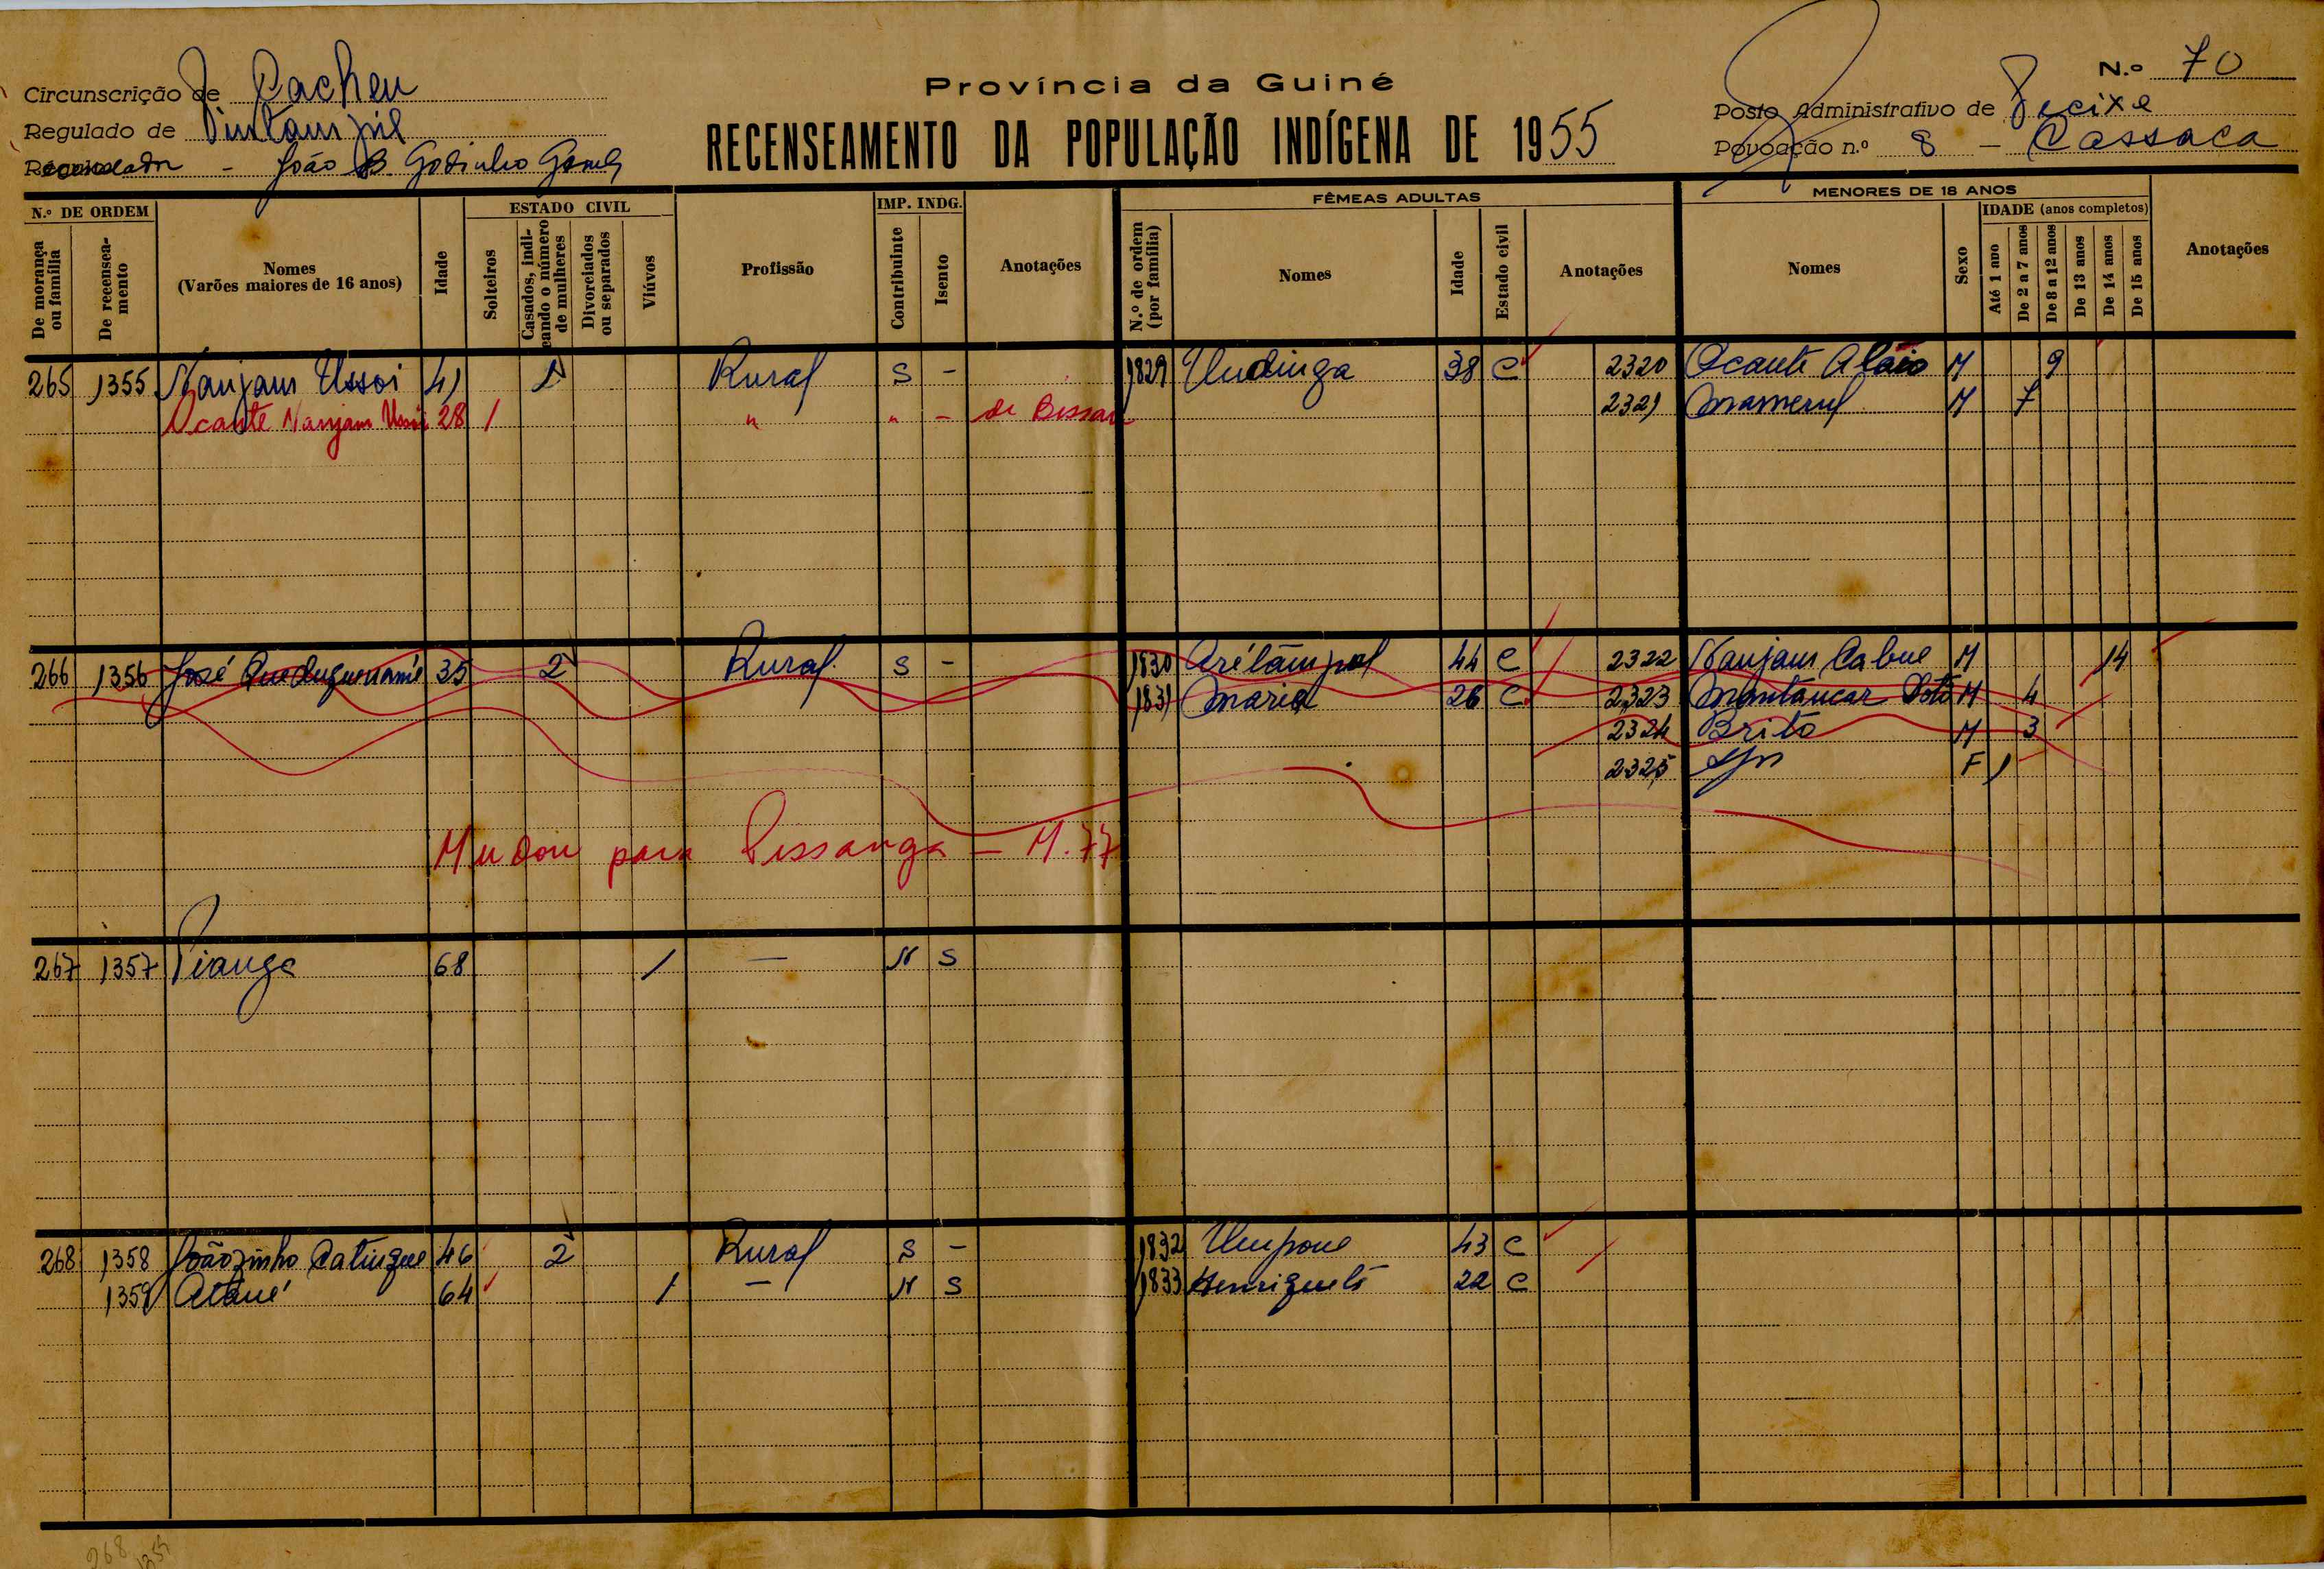 N.º 70
Província da Guiné
Circunscrição de Cacheu
Posto Administrativo de Jecixe
Regulado de
RECENSEAMENTO DA POPULAÇÃO INDÍGENA DE 1955
Povoação n.º 8 - Cassaca
- João B. Godinho Gomes
N.º DE ORDEM
De morança ou família
De recenseamento
Nomes
(Varões maiores de 16 anos)
Idade
ESTADO CIVIL
Solteiros
Casados, indicando o número de mulheres
Divorciados ou separados
Viúvos
Profissão
IMP. INDG.
Contribuinte
Isento
Anotações
FÊMEAS ADULTAS
N.º de ordem (por família)
Nomes
Idade
Estado civil
Anotações
MENORES DE 18 ANOS
Nomes
Sexo
IDADE (anos completos)
Até 1 ano
De 2 a 7 anos
De 8 a 12 anos
De 13 anos
De 14 anos
De 15 anos
Anotações
265 1355 Nanjam Ussoi 41 1 Rural S - 1829 Undinga 38 C 2320 Ocante Aláio M 9
Ocante Nanjam Ussoi 28 1 " " - de Bissau 2321 M 7
266 1356 José 35 2 Rural S - 1830 44 C 2322 Nanjam Cabue M 14
1831 Maria 26 C 2323 M 4
2324 Brito M 3
2325 F 1
Mudou para Pissanga - M. 77
267 1357 Pianga 68 1 - N S
268 1358 Joãozinho Catingue 46 2 Rural S - 1832 Umpone 43 C
1359 64 1 - N S 1833 Henriqueta 22 C
268
1359